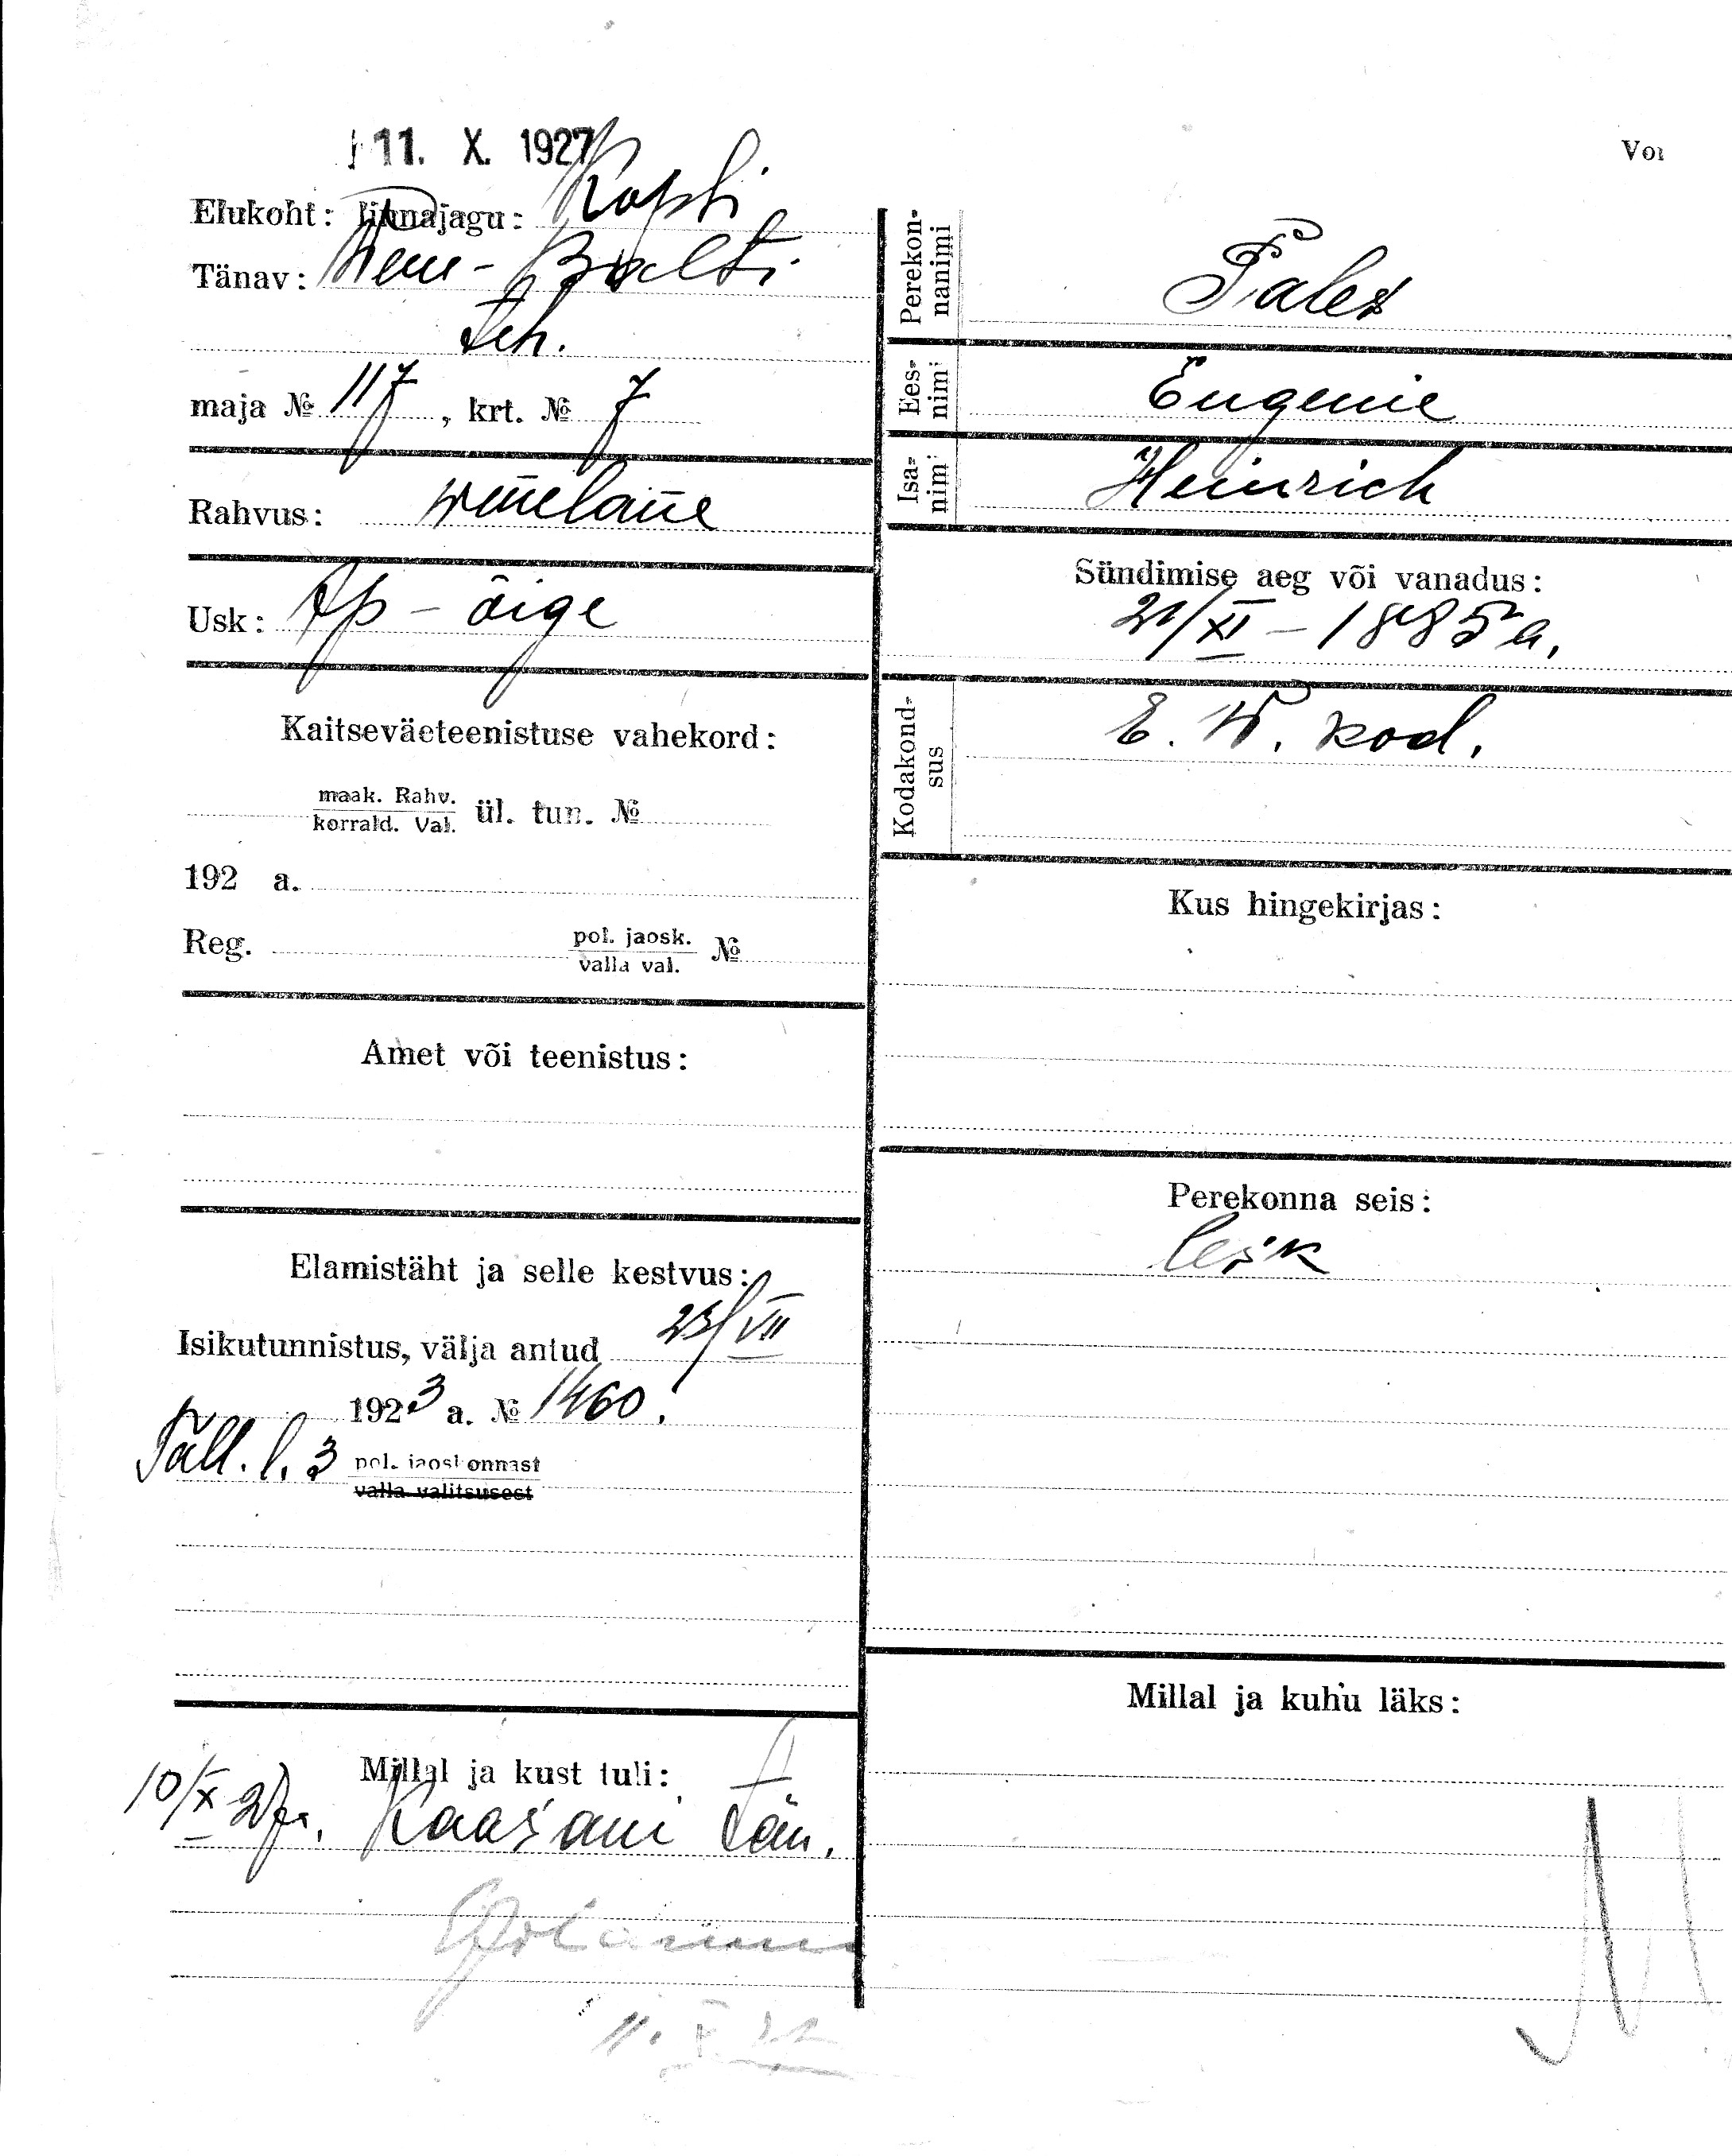 11. X. 1927
Elukoht: linnajagu: Kopli
Tänav: Wene-Balti
teh.
maja № 117, krt. № 7
Rahvus: wenelane
Usk: Ap-õige
Kaitseväeteenistuse vahekord:
maak. Rahv.
korrald. Val. ül. tun. №
192 a.
Reg. pol. jaosk.
valla val. №
Amet või teenistus:
Elamistäht ja selle kestvus:
Isikutunnistus, välja antud 23/VII
1923 a. № 1460.
Tall. l. 3 pol. jaoskonnast
valla valitsusest
Millal ja kust tuli:
10/X 27 a. Kaasani tän.
Vor
Perekon-
nanimi
Eugenie
Ees-
nimi
Heinrich
Isa-
nimi
Sündimise aeg või vanadus:
21/XI - 1885 a.
Kodakond-
sus
E. W. kod.
Kus hingekirjas:
Perekonna seis:
lesk
Millal ja kuhu läks: